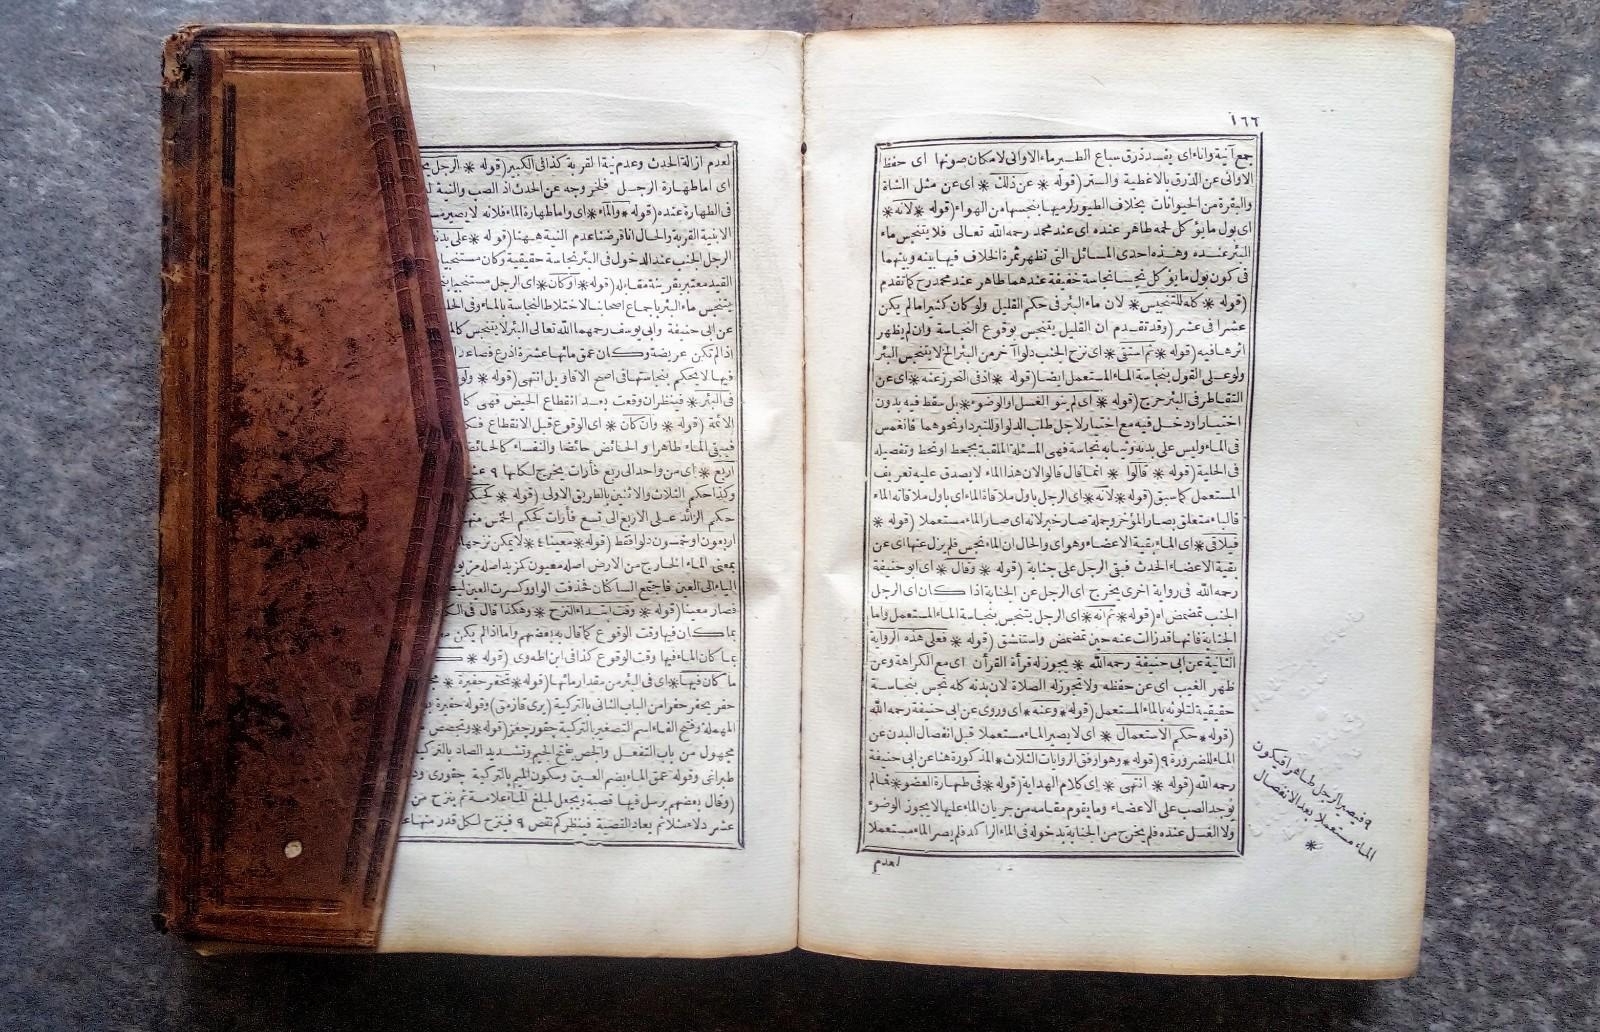 ١٦٦
جمع آنية واناء اى يفسد ذرق سباع الطير ماء الاوانى لامكان صونها اى حفظ
الاوانى عن الذرق بالاغطية والستر (قوله * عن ذلك * اى عن مثل الشاة
والبقرة من الحيوانات بخلاف الطيور لرميها بنجسها من الهواء (قوله * لانه *
اى بول ما يؤكل لحمه طاهر عنده اى عند محمد رحمه الله تعالى فلا يتنجس ماء
البئر عنده وهذه احدى المسائل التى تظهر ثمرة الخلاف فيها بينه وبينهما
فى كون بول ما يؤكل نجسا نجاسة خفيفة عندهما طاهر عند محمد رح كما تقدم
(قوله * كله للتنجيس * لان ماء البئر فى حكم القليل ولو كان كثيرا مالم يكن
عشرا فى عشر (وقد تقدم ان القليل يتنجس بوقوع النجاسة وان لم يظهر
اثرها فيه (قوله * ثم استقى * اى نزح الجنب دلوا آخر من البئر الخ لا يتنجس البئر
ولو على القول بنجاسة الماء المستعمل ايضا (قوله * اذ فى التحرز عنه * اى عن
التقاطر فى البئر حرج (قوله * اى لم ينو الغسل او الوضوء * بل سقط فيه بدون
اختيار او دخل فيه مع اختيار لاجل طلب الدلو او للتبرد او نحوهما فانغمس
فى الماء وليس على بدنه وثيابه نجاسة فهى المسئلة الملقبة بجحط او نحط وتفصيله
فى الحلية (قوله * قالوا * انما قال قالوا لان هذا الماء لا يصدق عليه تعريف
المستعمل كما سبق (قوله * لانه * اى الرجل باول ملاقاة الماء اى باول ملاقاته الماء
فالباء متعلق بصار المؤخر وجملة صار خبر لانه اى صار الماء مستعملا (قوله *
فيلاقى * اى الماء بقية الاعضاء وهو اى والحال ان الماء نجس فلم يزل عنها اى عن
بقية الاعضاء الحدث فبقى الرجل على جنابة (قوله * وقال * اى ابو حنيفة
رحمه الله فى رواية اخرى يخرج اى الرجل عن الجنابة اذا كان اى الرجل
الجنب تمضمض اه (قوله * ثم انه * اى الرجل يتنجس بنجاسة الماء المستعمل واما
الجنابة فانها قد زالت عنه حين تمضمض واستنشق (قوله * فعلى هذه الرواية
الثانية عن ابى حنيفة رحمه الله * يجوز له قرأة القرأن اى مع الكراهة وعن
ظهر الغيب اى عن حفظه ولا تجوز له الصلاة لان بدنه كله نجس بنجاسة
حقيقية لتلوثه بالماء المستعمل (قوله * وعنه * اى وروى عن ابى حنيفة رحمه الله
(قوله * حكم الاستعمال * اى لا يصير الماء مستعملا قبل انفصال البدن عن
الماء للضرورة ٩ (قوله * وهو اوفق الروايات الثلاث * المذكورة هنا عن ابى حنيفة
رحمه الله (قوله * انتهى * اى كلام الهداية (قوله * فى طهارة العضو * فما لم
يوجد الصب على الاعضاء وما يقوم مقامه من جريان الماء عليها لا يجوز الوضوء
ولا الغسل عنده فلم يخرج من الجنابة بدخوله فى الماء الراكد فلم يصر الماء مستعملا
لعدم
٩ فيصير الرجل طاهرا فيكون
الماء مستعملا بعد الانفصال
*
لعدم ازالة الحدث وعدم نية القربة كذا فى الكبير (قوله * الرجل
اى اما طهارة الرجل فلخروجه عن الحدث اذ الصب والنية
فى الطهارة عنده (قوله * والماء * اى واما طهارة الماء فلانه لا يصير
الا بنية القربة والحال انا فرضنا عدم النية ههنا (قوله * على
الرجل الجنب عند الدخول فى البئر نجاسة حقيقية وكان مستنجيا
القيد معتبر بقرينة مقابله (قوله * او كان * اى الرجل مستنجيا
يتنجس ماء البئر باجماع اصحابنا لاختلاط النجاسة بالماء وفى
عن ابى حنيفة وابى يوسف رحمهما الله تعالى البئر لا يتنجس
اذا لم تكن عريضة وكان عمق مائها عشرة اذرع فصاعدا
فيها لا يحكم بنجاستها فى اصح الاقاويل انتهى (قوله * ولو
فى البئر * فينظر ان وقعت بعد انقطاع الحيض فهى
الائمة (قوله * وان كان * اى الوقوع قبل الانقطاع
فيبقى الماء طاهرا والحائض حائضا والنفساء كالحائض
اربع * اى من واحد الى ربع فأرات يخرج لكلها ٩
وكذا حكم الثلاث والاثنين بالطريق الاولى (قوله *
حكم الزائد على الاربع الى تسع فأرات كحكم الخمس
اربعون او خمسون دلوا فقط (قوله * معينا ٤ * لا يمكن نزحها
بمعنى الماء الخارج من الارض اصله معيون كزيد اصله
الياء الى العين فاجتمع الساكنان فحذفت الواو وكسرت العين
فصار معينا (قوله * وقت ابتداء النزح * وهكذا قال فى
بما كان فيها وقت الوقوع كما قال به بعضهم واما اذا لم يكن
بما كان الماء فيها وقت الوقوع كذا فى ابن اطه وى (قوله *
ما كان فيها * اى فى البئر من مقدار مائها (قوله * تحفر حفيرة *
حفر يحفر حفرا من الباب الثانى بالتركية (يرى قازمق) وقوله حفيرة
المهملة وفتح الفاء اسم التصغير بالتركية چقور جغز (قوله * وتجصص
مجهول من باب التفعل والجص بفتح الجيم وتشديد الصاد
طبراغى وقوله عمق الماء بضم العين وسكون الميم بالتركية چقورى
(وقال بعضهم يرسل فيها قصبة ويجعل لمبلغ الماء علامة ثم ينزح من
عشر دلاء مثلا ثم يعاد القصبة فينظر كم نقص ٩ فينزح لكل قدر منها